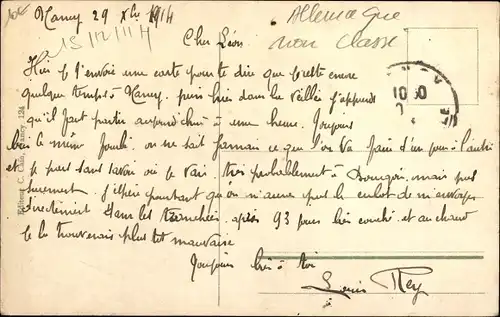 Nancy 29 Xbre 1914
Allemagne
non classé
15/12/14
Cher Léon
Hier je t'envoie une carte pour te dire que je reste encore
quelque temps à Nancy, puis hier dans la veillée j'apprends
qu'il faut partir aujourd'hui à une heure. Toujours
bien le même fourbi, on ne sait jamais ce que l'on va faire d'un jour à l'autre
et je pars sans savoir où je vais, très probablement à mais pas
sûrement. J'espère pourtant qu'on n'aura pas le culot de m'envoyer
directement dans les tranchées, après 93 jours bien couché et au chaud
je la trouverais plutôt mauvaise
Toujours bien à toi
Louis Rey
10 30
Editeur C. Nancy 124